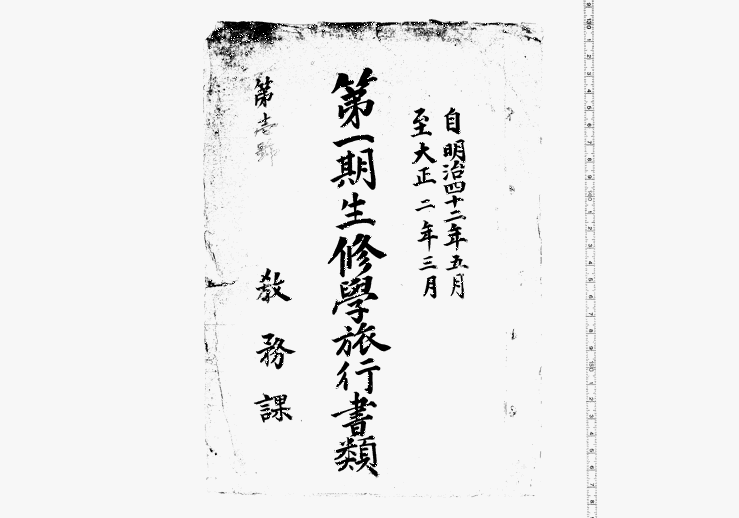 自明治四十二年五月
至大正二年三月
第一期生修學旅行書類
第壱號
教務課